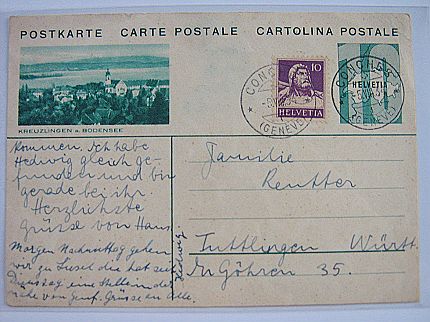 POSTKARTE CARTE POSTALE CARTOLINA POSTALE
KREUZLINGEN a. BODENSEE
CONCHES
(GENÈVE)
10
HELVETIA
CONCHES
(GENÈVE)
HELVETIA
kommen. Ich habe
Hedwig gleich ge-
funden und bin
gerade bei ihr.
Herzlichste
Grüsse von Hans
Morgen Nachmittag gehen
wir zu Lusel die hat seit
Dienstag eine Stelle in der
nähe von Genf. Grüsse an Alle.
Hedwig.
Familie
Reutter
Tuttlingen Württ.
In Göhren 35.